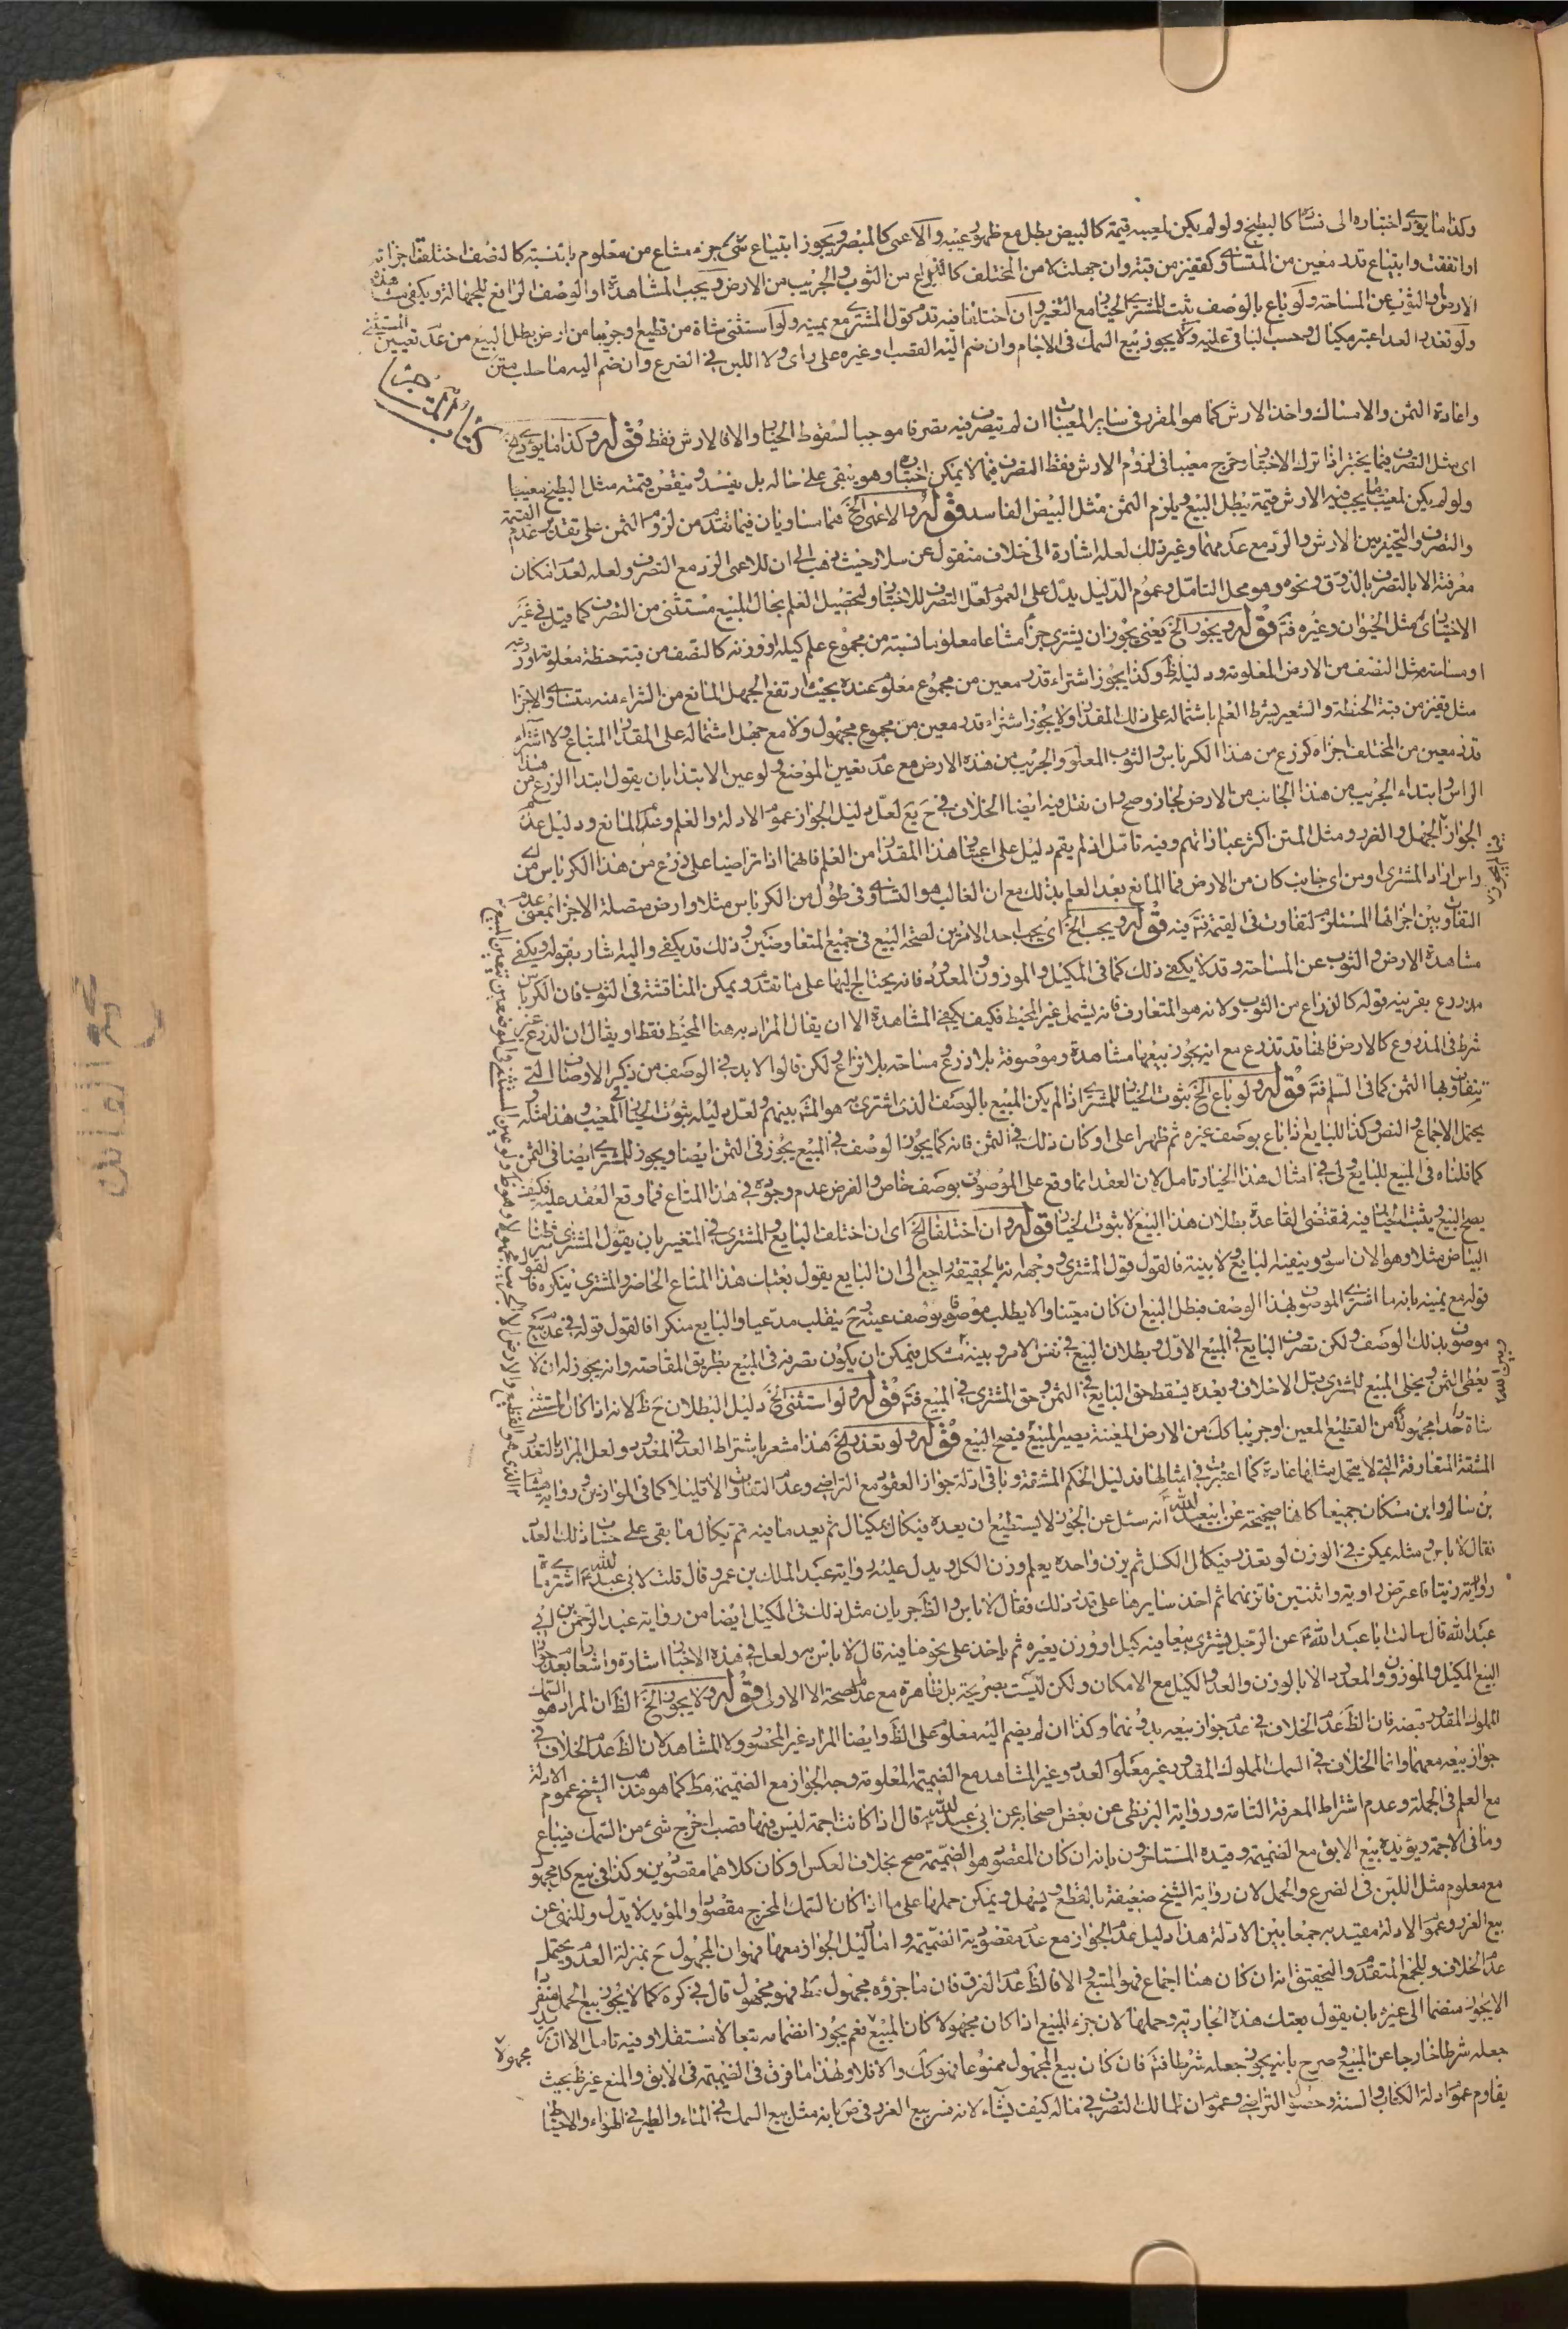 وكذا ما يؤدي اختباره الى فساده كالبطيخ ولو لم يكن لمعيبه قيمة كالبيض بطل مع ظهور عيبه والاعمى كالمبصر ويجوز ابتياع شئ جزء مشاع من معلوم بالنسبة كالنصف اختلفت اجزائه
او اتفقت وابتياع قدر معين من المتساوي كقفيز من قبة وان جهلت لا من المختلف كالذراع من الثوب والجريب من الارض ويجب المشاهدة او الوصف الرافع للجهالة ويكفي مشاهدة
الارض والثوب عن المساحة ولو باع بالوصف ثبت للمشتري الخيار مع التغير وان اختلفا فيه قدم قول المشتري مع يمينه ولو استثنى شاة من قطيع او جريبا من ارض بطل البيع من عدم تعيين المستثنى
ولو تعذر العد اعتبر مكيال وحسب الباقي عليه ولا يجوز بيع السمك في الاجام وان ضم اليه القصب او غيره على راى ولا اللبن في الضرع وان ضم اليه ما حلب متن
كتاب المتاجر
واعادة الثمن والامساك واخذ الارش كما هو المقرر في ساير المعيبات ان لم يتصرف فيه تصرفا موجبا لسقوط الخيار والا فالارش فقط قوله وكذا ما يؤدي الخ
اى مثل التصرف فيما يختبر اذا ترك الاختبار وخرج معيبا في لزوم الارش فقط التصرف فيما لا يمكن اختباره وهو يبقى على حاله بل يفسد وينقص قيمته مثل البطيخ معيبا
ولو لم يكن لمعيبه ما يجب فيه الارش قيمة يبطل البيع ويلزم الثمن مثل البيض الفاسد قوله والاعمى الخ فهما متساويان فيما تقدم من لزوم الثمن على تقدير عدم القيمة
والتصرف والتخيير بين الارش والرد مع عدمهما وغير ذلك لعله اشارة الى خلاف منقول عن سلار حيث ذهب الى ان للاعمى الرد مع التصرف ولعله لعدم امكان
معرفته الا بالتصرف بالذوق ونحوه وهو محل التامل وعموم الدليل يدل على العموم لعل التصرف للاختبار ولتحصيل العلم بحال المبيع مستثنى من التصرف كما قيل في غير
الاختباري مثل الحيوان وغيره فتم قوله ويجوز الخ يعني يجوز ان يشتري جزأ مشاعا معلوما بالنسبة من مجموع علم كيله او وزنه كالنصف من قبة حنطة معلومة او ذرعه
او مساحته مثل النصف من الارض المعلومة ودليله ظ وكذا يجوز اشتراء قدر معين من مجموع معلوم عنده بحيث ارتفع الجهل المانع من الشراء منه متساوي الاجزا
مثل قفيز من قبة الحنطة والشعير بشرط العلم باشتماله على ذلك المقدار ولا يجوز اشتراء قدر معين من مجموع مجهول ولا مع جهل اشتماله على المقدار المبتاع ولا اشتراء
قدر معين من المختلف اجزاء كذرع من هذا الكرباس والثوب المعلوم والجريب من هذه الارض مع عدم تعيين الموضع ولو عين الابتدا بان يقول ابتدا الذرع من هذا
الراس وابتداء الجريب من هذا الجانب من الارض لجاز وصح وان نقل فيه ايضا الخلاف في ح يع لعل دليل الجواز عموم الادلة والعلم وعدم المانع ودليل عدم
الجواز الجهل والغرر ومثل المتن اكثر عباراتهم وفيه تامل اذ لم يقم دليل على اعتبار هذا المقدار من العلم فانهما اذا تراضيا على ذرع من هذا الكرباس من اي
راس اراد المشتري او من اى جانب كان من الارض فما المانع بعد العلم بذلك مع ان الغالب هو التساوي في طول من الكرباس مثلا وارض متصلة الاجزا بمعنى عدم
التفاوت بين اجزائها المستلزم لتفاوت في القيمة فتم فيه قوله ويجب الخ اى يجب احد الامرين لصحة البيع في جميع المتعاوضين وذلك قد يكفي واليه اشار بقوله ويكفي
مشاهدة الارض والثوب عن المساحة وقد لا يكفي ذلك كما في المكيل والموزون والمعدود فانه يحتاج اليها على ما تقدم ويمكن المناقشة في الثوب فان الكرباس
مما يذرع بقرينة قوله كالذراع من الثوب ولانه هو المتعارف فانه يشمل غير المخيط فكيف يكفي المشاهدة الا ان يقال المراد به هنا المخيط فقط او يقال ان الذرع غير
شرط في المذروع كالارض فانها قد تذرع مع انه يجوز بيعها مشاهدة وموصوفة بلا ذرع ومساحة بلا نزاع ولكن قالوا لا بد في الوصف من ذكر الاوصاف التي
يتفاوت بها الثمن كما في السلم فتم قوله ولو باع الخ ثبوت الخيار للمشتري اذا لم يكن المبيع بالوصف الذي اشترى به هو المش بينهم ولعل دليله ثبوت الخيار في المعيب وهذا مثله
يحتمل الاجماع والنص وكذا للبايع اذا باع بوصف غيره ثم ظهر اعلى او كان ذلك في الثمن فانه كما يجوز الوصف في المبيع يجوز في الثمن ايضا ويجوز للمشتري ايضا في الثمن
كما قلناه في المبيع للبايع ولي في امثال هذا الخيار تامل لان العقد انما وقع على الموصوف بوصف خاص والفرض عدم وجوده في هذا المتاع فما وقع العقد عليه فكيف
يصح البيع ويثبت الخيار فيه فمقتضى القاعدة بطلان هذا البيع لا ثبوت الخيار قوله وان اختلفا الخ اى ان اختلف البايع والمشتري في التغيير بان يقول المشتري شرطنا
البياض مثلا وهو الان اسود وينفيه البايع ولا بينة فالقول قول المشتري وجهه انه بالحقيقة راجع الى ان البايع يقول بعتك هذا المتاع الحاضر والمشتري ينكره فالقول
قوله مع يمينه بانه ما اشترى الموصوف بهذا الوصف فبطل البيع ان كان معينا والا يطلب موصوفا بوصف عينه وح ينقلب مدعيا والبايع منكرا فالقول قوله في عدم بيع
موصوف بذلك الوصف ولكن تصرف البايع في المبيع الاول وبطلان البيع في نفس الامر وبينه مشكل فيمكن ان يكون تصرفه في المبيع بطريق المقاصة وانه يجوز له ان لا
يعطى الثمن ويخلى المبيع للمشتري قبل الاخلاف وبعده يسقط حق البايع في الثمن وحق المشتري في المبيع فتم قوله ولو استثنى الخ دليل البطلان ح ظ لانه اذا كان المستثنى
شاة واحدا مجهولة من القطيع المعين او جريبا كك من الارض المعينة يصير المبيع فيصح البيع قوله ولو تعذر الخ هذا مشعر باشتراط العد في المعدود ولعل المراد بالتعذر
المشقة المتعارفة التي لا يتحمل مثلها عادة كما اعتبرت في امثالها فدليل الحكم المشقة وباقي ادلة جواز العقود مع التراضي وعدم التفاوت الا قليلا كما في الموازين ورواية هشام
بن سالم وابن مسكان جميعا كانها صحيحة عن ابي عبد الله ع انه سئل عن الجوز لا يستطيع ان يعده فيكال بمكيال ثم يعد ما فيه ثم يكال ما بقي على حساب ذلك العدد
فقال لا باس ومثله يمكن في الوزن لو تعذر فيكال الكل ثم يزن واحده يعلم وزن الكل ويدل عليه رواية عبد الملك بن عمرو قال قلت لابي عبد الله ع اشتري مائة
راوية زيتا فاعترض راوية واثنتين فاتزنهما ثم اخذ سايرها على قدر ذلك فقال لا باس والظ جريان مثل ذلك في المكيل ايضا من رواية عبد الرحمن بن ابي
عبد الله قال سالت ابا عبد الله ع عن الرجل يشتري بيعا فيه كيل او وزن بغيره ثم ياخذ على نحو ما فيه قال لا باس به ولعل في هذه الاخبار اشارة واشعارا بعدم جواز
البيع المكيل والموزون والمعدود الا بالوزن والعد والكيل مع الامكان ولكن ليست بصريحة بل ظاهرة مع عدم صحة الا الاولى قوله ولا يجوز الخ الظ ان المراد هو السمك
المملوك المقدور قبضه فان الظ عدم الخلاف في عدم جواز بيعه بدونهما وكذا ان لم يضم اليه معلوم على الظ وايضا المراد غير المحصور ولا المشاهد لان الظ عدم الخلاف في
جواز بيعه معهما وانما الخلاف في السمك المملوك المقدور غير معلوم العدد وغير المشاهد مع الضميمة المعلومة وجه الجواز مع الضميمة مط كما هو مذهب الشيخ عموم الادلة
مع العلم في الجملة وعدم اشتراط المعرفة التامة ورواية البزنطي عن بعض اصحابه عن ابي عبد الله ع قال اذا كانت اجمة ليس فيها قصب اخرج شئ من السمك فيباع
وما في الاجمة ويؤيده بيع الابق مع الضميمة وقيده المتاخرون بانه ان كان المقصود هو الضميمة صح بخلاف العكس او كان كلاهما مقصودين وكذا في بيع كل مجهول
مع معلوم مثل اللبن في الضرع والحمل لان رواية الشيخ ضعيفة بالقطع وسهل ويمكن حملها على ما اذا كان السمك المخرج مقصودا والمؤيد لا يدل وللنهي عن
بيع الغرر وعموم الادلة مقيد به جمعا بين الادلة هذا دليل عدم الجواز مع عدم مقصودية الضميمة واما دليل الجواز معها فهو ان المجهول ح بمنزلة العدم ويحتمل
عدم الخلاف وللجمع المتقدم والتحقيق انه ان كان هنا اجماع فهو المتبع والا فالظ عدم الفرق فان ما جزؤه مجهول مط فهو مجهول قال في كره كما لا يجوز بيع الحمل منفردا
لا يجوز منضما الى غيره بان يقول بعتك هذه الجارية وحملها لان جزء المبيع اذا كان مجهولا كان المبيع مجهولا نعم يجوز انضمامه تبعا لا مستقلا وفيه تامل الا ان يريد
جعله شرطا خارجا عن المبيع وصرح بانه يجوز جعله شرطا فتم فان كان بيع المجهول ممنوعا فهو كك والا فلا ولهذا ما فرق في الضميمة في الابق والمنع غير ظ بحيث
يقاوم عموم ادلة الكتاب والسنة وحصول التراضي وعموم ان للمالك التصرف في ماله كيف يشاء لانه فسر بيع الغرر في ص بانه مثل بيع السمك في الماء والطير في الهواء والاحتياط